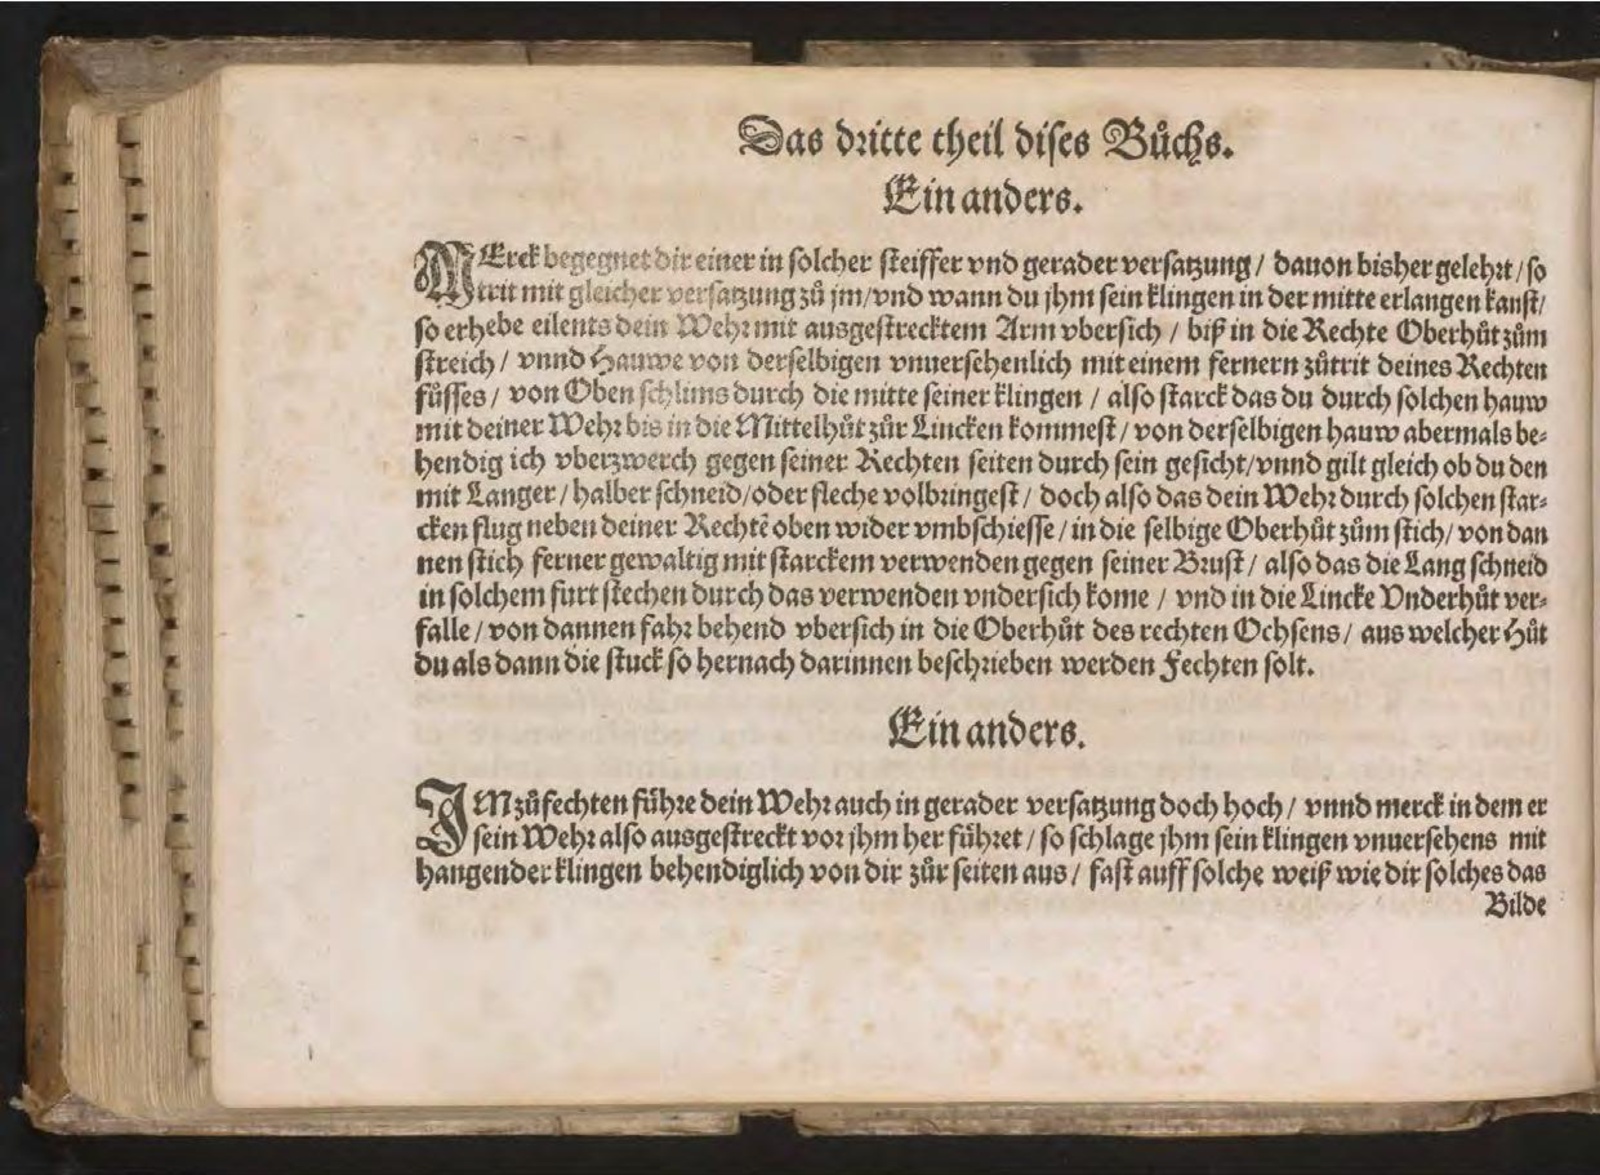 Das dritte theil dises Bůchs.
Ein anders.
MErck begegnet dir einer in solcher steiffer vnd gerader versatzung / dauon bisher gelehrt / so
trit mit gleicher versatzung zů jm / vnd wann du jhm sein klingen in der mitte erlangen kanst /
so erhebe eilents dein Wehr mit ausgestrecktem Arm vbersich / biß in die Rechte Oberhůt zům
streich / vnnd Hauwe von derselbigen vnuersehenlich mit einem fernern zůtrit deines Rechten
fůsses / von Oben schlims durch die mitte seiner klingen / also starck das du durch solchen hauw
mit deiner Wehr bis in die Mittelhůt zůr Lincken kommest / von derselbigen hauw abermals be-
hendig ich vberzwerch gegen seiner Rechten seiten durch sein gesicht / vnnd gilt gleich ob du den
mit Langer / halber schneid / oder fleche volbringest / doch also das dein Wehr durch solchen star-
cken flug neben deiner Rechtē oben wider vmbschiesse / in die selbige Oberhůt zům stich / von dan
nen stich ferner gewaltig mit starckem verwenden gegen seiner Brust / also das die Lang schneid
in solchem furt stechen durch das verwenden vndersich kome / vnd in die Lincke Vnderhůt ver-
falle / von dannen fahr behend vbersich in die Oberhůt des rechten Ochsens / aus welcher Hůt
du als dann die stuck so hernach darinnen beschrieben werden Fechten solt.
Ein anders.
IM zůfechten führe dein Wehr auch in gerader versatzung doch hoch / vnnd merck in dem er
sein Wehr also ausgestreckt vor jhm her führet / so schlage jhm sein klingen vnuersehens mit
hangender klingen behendiglich von dir zůr seiten aus / fast auff solche weiß wie dir solches das
Bilde